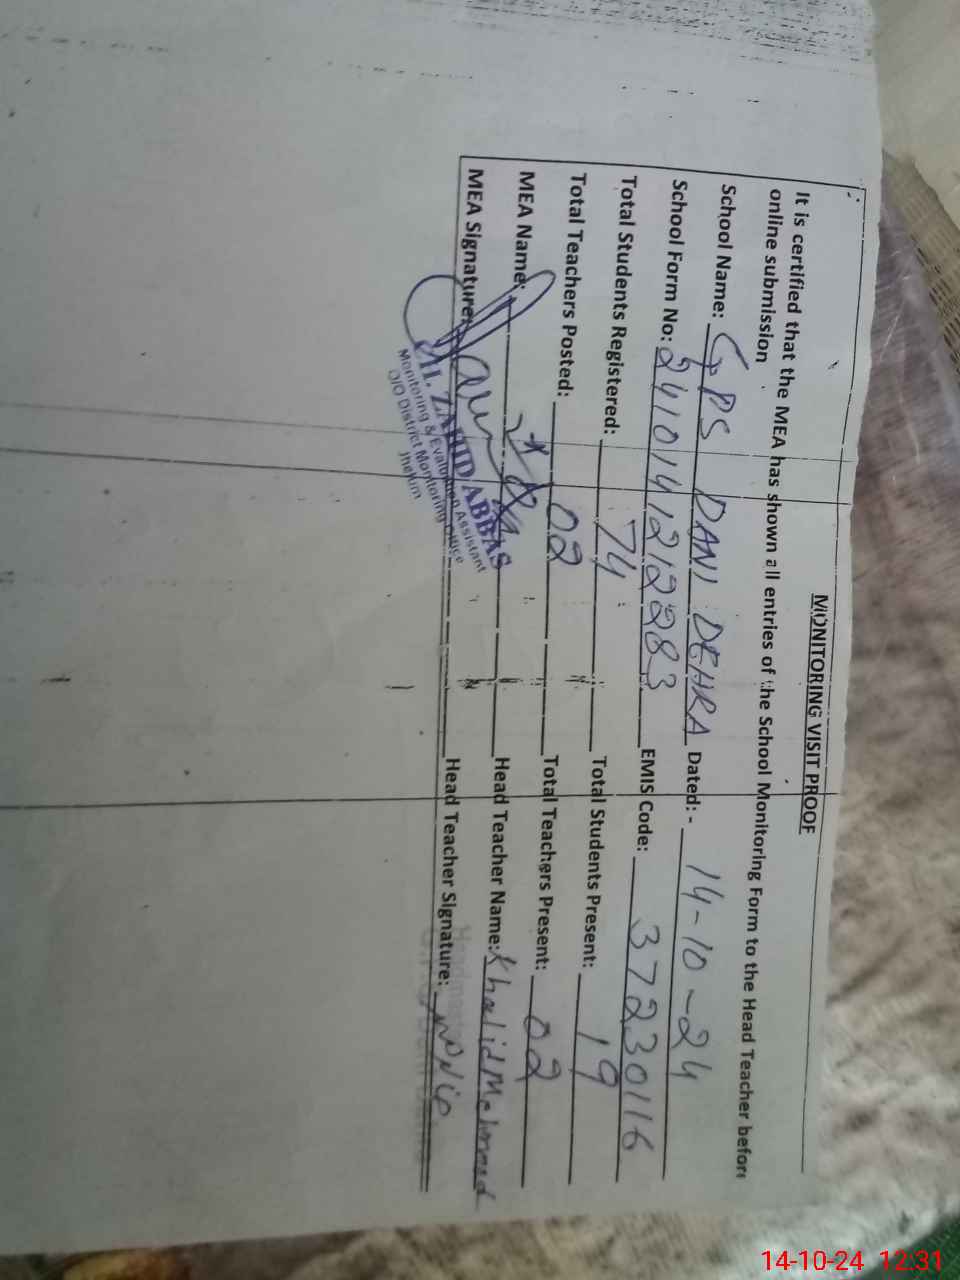 MONITORING VISIT PROOF
It is certified that the MEA has shown all entries of the School Monitoring Form to the Head Teacher before
online submission
School Name: GPS DANI DEHRA Dated: - 14-10-24
School Form No: 2410141212283 EMIS Code: 37230116
Total Students Registered: 74 Total Students Present: 19
Total Teachers Posted: 02 Total Teachers Present: 02
MEA Name: Head Teacher Name: Khalid Mehmood
MEA Signature: Head Teacher Signature:
ZAHID ABBAS
Monitoring & Evaluation Assistant
O/O District Monitoring Office
Jhelum
14-10-24 12:31